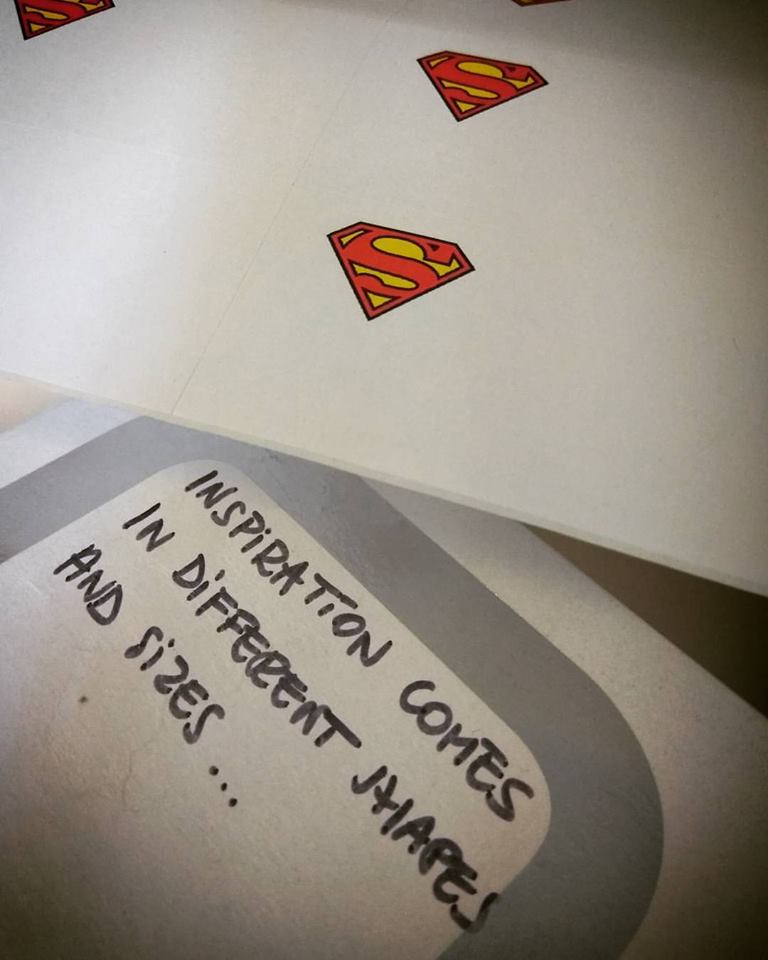 INSPIRATION COMES
IN DIFFERENT SHAPES
AND SIZES ...